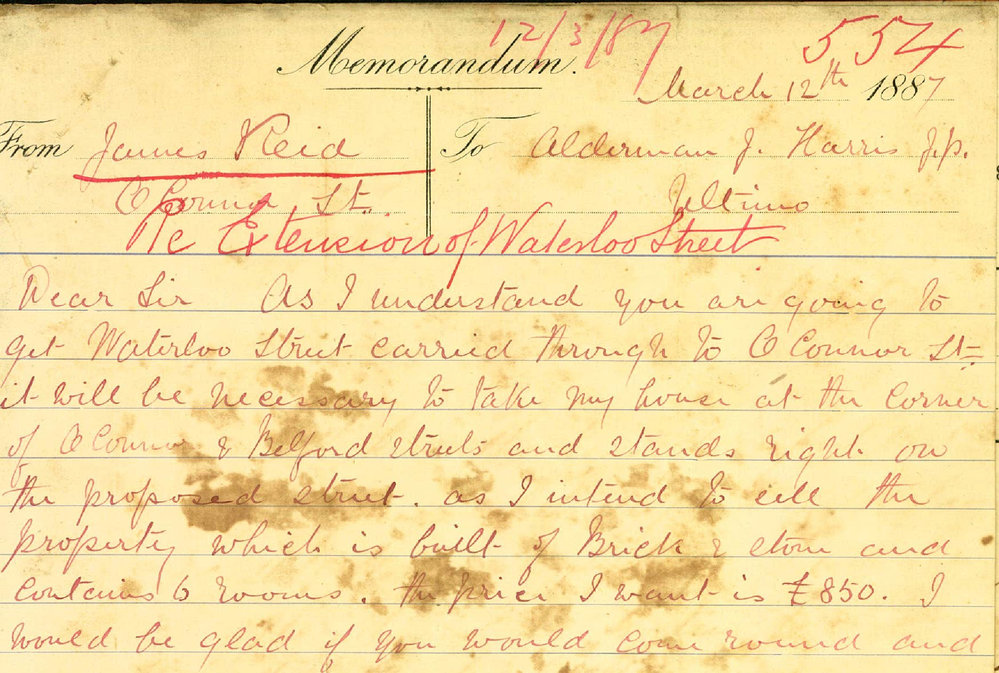 12/3/87 554
Memorandum.
March 12th 1887
From James Reid To Alderman J. Harris J.p.
O Connor St. Ultimo
Re Extension of Waterloo Street
Dear Sir As I understand you are going to
get Waterloo Street carried through to O Connor St
it will be necessary to take my house at the corner
of O Connor & Belford streets and stands right on
the proposed street. as I intend to sell the
property which is built of Brick & stone and
contains 6 rooms. the price I want is £850. I
would be glad if you would come round and